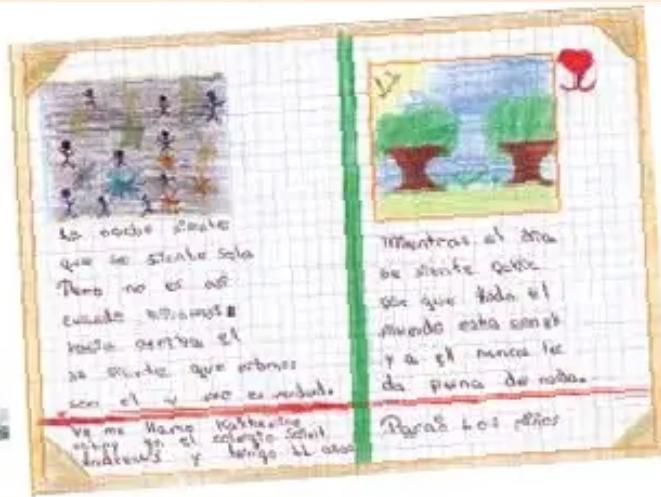 La noche siente
que se siente sola
Pero no es así
cuando miramos
hacia arriba el
se siente que estamos
con el y eso es verdad.
Yo me llamo Katherine
estoy en el colegio Saint
Andrews y tengo 11 años
Mientras el dia
se siente
por que todo el
mundo esta con el
y a el nunca le
da pena de nada.
Para: Los niños